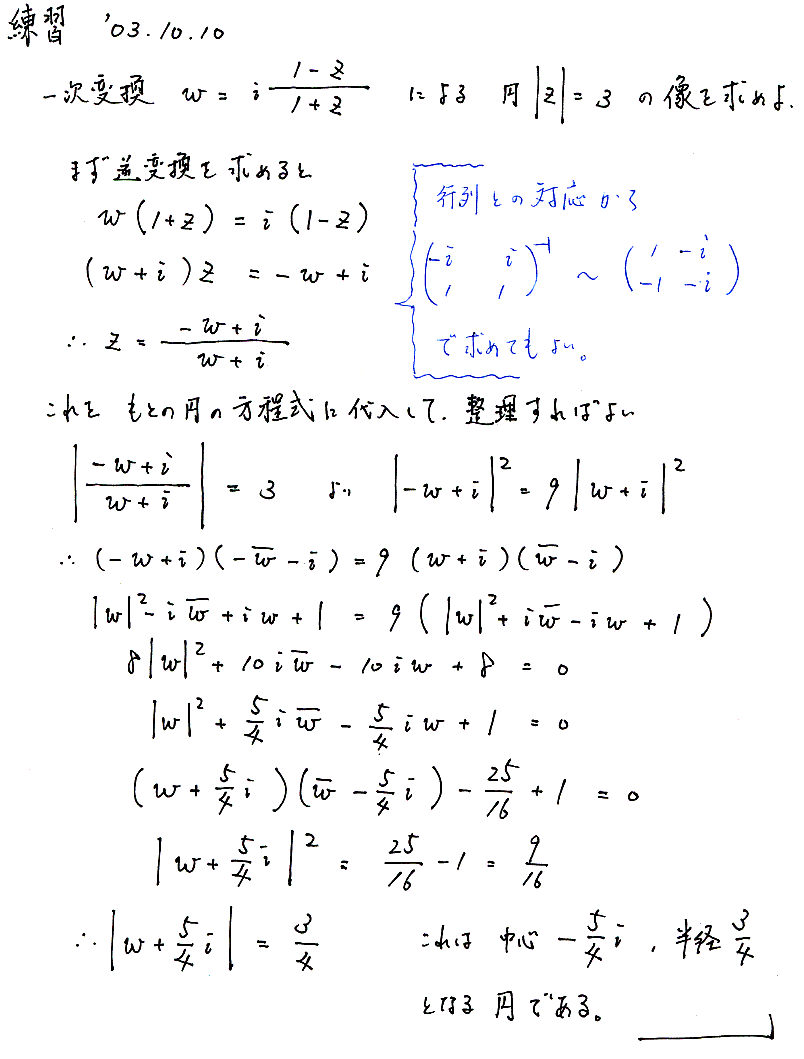 練習 '03.10.10
一次変換 w = i (1-z)/(1+z) による 円 |z| = 3 の像を求めよ.
まず逆変換を求めると
w(1+z) = i(1-z)
(w+i)z = -w+i
∴ z = (-w+i)/(w+i)
行列との対応から
(-i i ; 1 1)^-1 ~ (1 -i ; -1 -i)
で求めてもよい。
これを もとの円の方程式に代入して、整理すればよい
|(-w+i)/(w+i)| = 3 より |-w+i|² = 9|w+i|²
∴ (-w+i)(-w̅-i) = 9 (w+i)(w̅-i)
|w|² - iw̅ + iw + 1 = 9(|w|² + iw̅ - iw + 1)
8|w|² + 10iw̅ - 10iw + 8 = 0
|w|² + 5/4 iw̅ - 5/4 iw + 1 = 0
(w + 5/4 i)(w̅ - 5/4 i) - 25/16 + 1 = 0
|w + 5/4 i|² = 25/16 - 1 = 9/16
∴ |w + 5/4 i| = 3/4 これは 中心 -5/4 i , 半径 3/4
となる 円である。